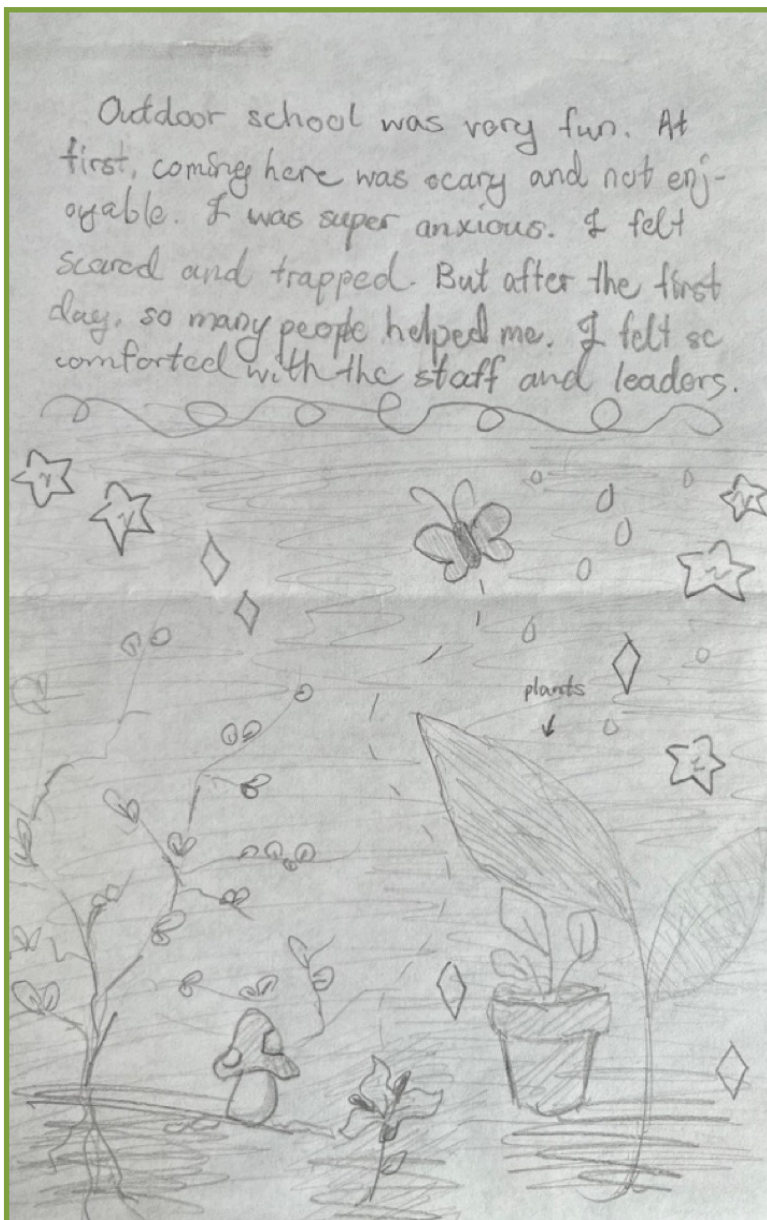 Outdoor school was very fun. At
first, coming here was scary and not enj-
oyable. I was super anxious. I felt
scared and trapped. But after the first
day, so many people helped me. I felt so
comforted with the staff and leaders.
plants